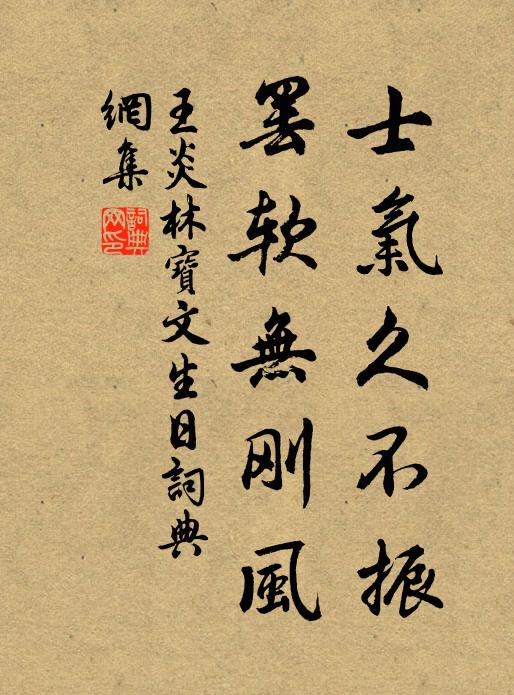 士氣久不振
罢軟無刚風
王炎林寶文生日詞典
網集
詞典
网印